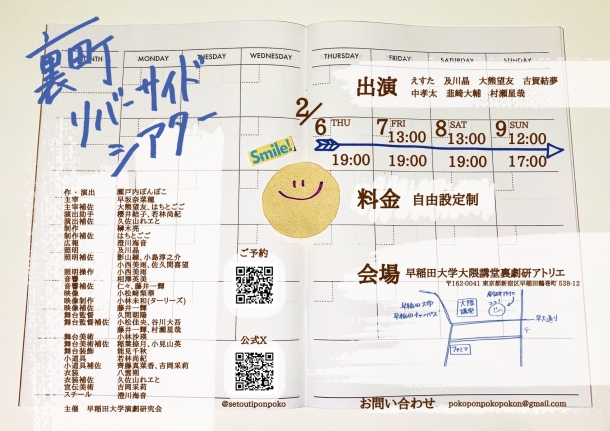 裏町
リバーサイド
シアター
MONTH
MONDAY
TUESDAY
WEDNESDAY
THURSDAY
FRIDAY
SATURDAY
SUNDAY
出演
えすた 及川晶 大熊望友 古賀結夢
中孝太 韮崎大輔 村瀬星哉
2/
6 THU
7 FRI
8 SAT
9 SUN
13:00
13:00
12:00
19:00
19:00
19:00
17:00
Smile!
料金 自由設定制
会場 早稲田大学大隈講堂裏劇研アトリエ
〒162-0041 東京都新宿区早稲田鶴巻町 538-12
早稲田大学
早稲田キャンパス
大隈
講堂
ココ!
早大通り
ファミマ
作・演出 瀬戸内ぽんぽこ
主宰 早坂奈菜穂
主宰補佐 大熊望友、はちとごご
演出助手 櫻井結子、若林尚紀
演出補佐 久佐山れエと
制作 榊木亮
制作補佐 はちとごご
広報 澄川海音
照明 及川晶
照明補佐 影山線、小島淳之介
小西美雨、佐久間喜望
照明操作 小西美雨
音響 相澤英美
音響補佐 仁々、藤井一輝
映像 小松崎梨樹
映像制作 小林未和(ターリーズ)
映像補佐 藤井一輝
舞台監督 久間朝陽
舞台監督補佐 小松佳央、谷川大吾
藤井一輝、村瀬星哉
舞台美術 小林沙瑛
舞台美術補佐 稲葉掠月、小見山英
舞台装飾 能見千秋
小道具 若林尚紀
小道具補佐 齊藤真菜香、吉岡茉莉
衣装 八雲朔
衣装補佐 久佐山れエと
宣伝美術 吉岡茉莉
スチール 澄川海音
主催 早稲田大学演劇研究会
ご予約
公式X
@setoutiponpoko
お問い合わせ pokoponpokopokon@gmail.com